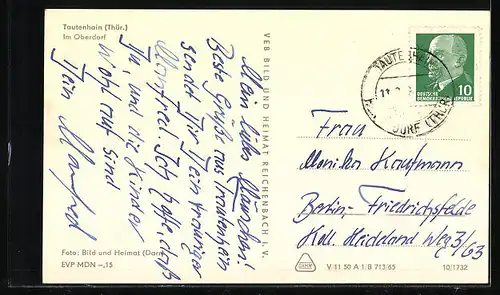 Tautenhain (Thür.)
Im Oberdorf
Mein liebes Mäuschen!
Beste Grüße aus Tautenhain
sendet Dir Dein
Manfred. Ich hoffe daß
Du, und die Kinder
Wohl auf sind
Dein Manfred
VEB BILD UND HEIMAT REICHENBACH I. V.
Foto: Bild und Heimat (Darr)
EVP MDN –,15
TAUTENHAIN
DORF (THÜR
DEUTSCHE
DEMOKRATISCHE REPUBLIK
10
Frau
Monika Kaufmann
Berlin-Friedrichsfelde
Koll. Heideland Weg 3/63
V 11 50 A 1/B 713/65
10/1732